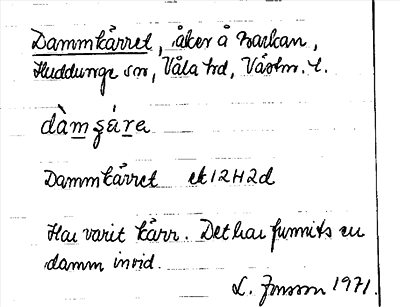 Dammkärret, åker å Harkan,
Huddunge sn, Våla hd, Västm. l.
dàmʂære
Dammkärret ek 12H2d
Har varit kärr. Det har funnits en
damm invid.
L. Jonsson 1971.